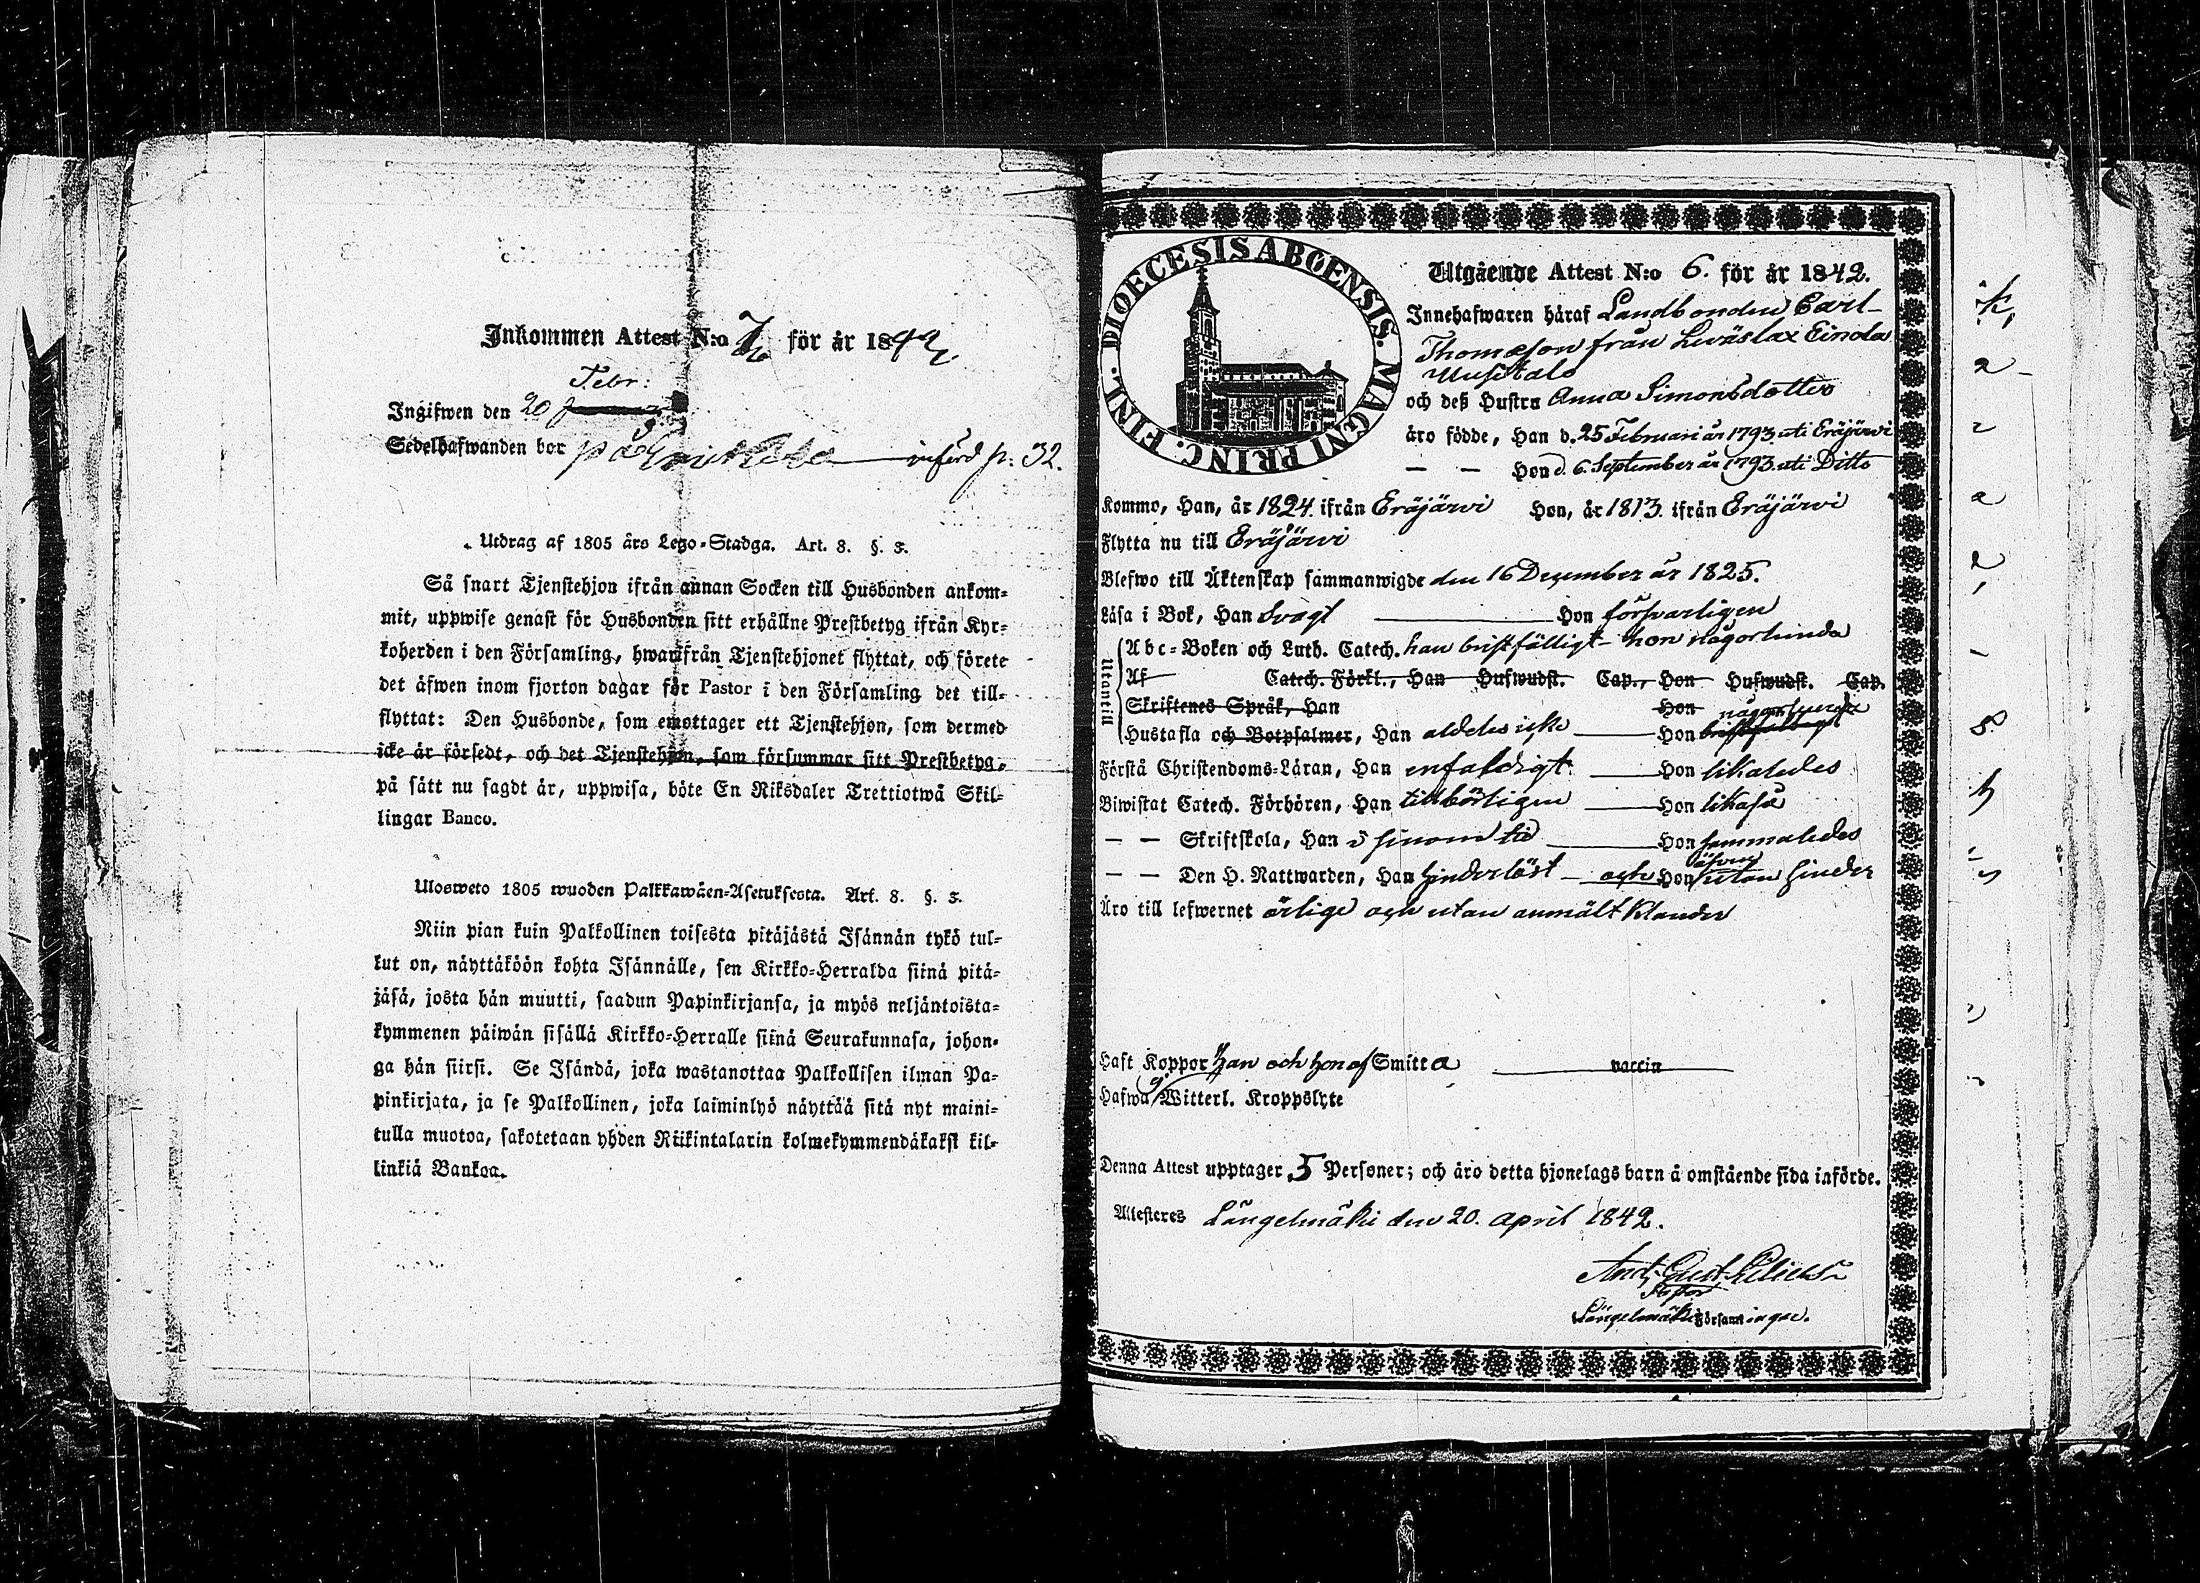 Inkommen Attest N:o 7 för år 1842.
Febr:
Ingifwen den 20
Sedelhafwanden bor på införd p: 32.
Utdrag af 1805 års Lego-Stadga. Art. 8. §. 3.
Så snart Tjenstehjon ifrån annan Socken till Husbonden ankom-
mit, uppwise genast för Husbonden sitt erhållne Prestbetyg ifrån Kyr-
koherden i den Församling, hwarifrån Tjenstehjonet flyttat, och förete
det äfwen inom fjorton dagar för Pastor i den Församling det till-
flyttat: Den Husbonde, som emottager ett Tjenstehjon, som dermed
icke är försedt, och det Tjenstehjon, som försummar sitt Prestbetyg,
på sätt nu sagdt är, uppwisa, böte En Riksdaler Trettiotwå Skil-
lingar Banco.
Ulosweto 1805 wuoden Palkkawäen-Asetuksesta. Art. 8. §. 3.
Niin pian kuin Palkollinen toisesta pitäjästä Isännän tykö tul-
lut on, näyttäköön kohta Isännälle, sen Kirkko-Herralda siinä pitä-
jäsä, josta hän muutti, saadun Papinkirjansa, ja myös neljäntoista-
kymmenen päiwän sisällä Kirkko-Herralle siinä Seurakunnasa, johon-
ga hän siirsi. Se Isändä, joka wastanottaa Palkollisen ilman Pa-
pinkirjata, ja se Palkollinen, joka laiminlyö näyttää sitä nyt maini-
tulla muotoa, sakotetaan yhden Riikintalarin kolmekymmendäkaksi kil-
linkiä Bankoa.
DIOECESIS ABOENSIS. MAGNI PRINC. FINL.
Utgående Attest N:o 6. för år 1842.
Innehafwaren häraf Landbonden Carl
Thomasson från Leväslax Einola
Uusitalo
och deß Hustru Anna Simonsdotter
äro födde, Han d. 25 Februari år 1793. uti Eräjärvi
— — Hon d. 6. September år 1793. uti Ditto
Kommo, Han, år 1824. ifrån Eräjärvi Hon, år 1813. ifrån Eräjärvi
Flytta nu till Eräjärvi
Blefwo till Äktenskap sammanwigde den 16 December år 1825.
Läsa i Bok, Han svagt Hon försvarligen
Utantill
Abc-Boken och Luth. Catech. han bristfälligt - hon någorlunda
Af Catech. Förkl., Han Hufwudst. Cap., Hon Hufwudst. Cap.
Skriftenes Språk, Han Hon
Hustafla och Botpsalmer, Han aldeles icke Hon
Förstå Christendoms-Läran, Han enfaldigt Hon likaledes
Biwistat Catech. Förhören, Han tillbörligen Hon likaså
— — Skriftskola, Han i sinom tid Hon sammaledes
— — Den H. Nattwarden, Han hinderlöst och Hon äfven utan hinder
Äro till lefwernet ärlige och utan anmält klander
Haft Koppor han och hon af Smitta vaccin
Hafwa ej Witterl. Kroppslyte
Denna Attest upptager 5 Personer; och äro detta hjonelags barn å omstående sida införde.
Attesteras Längelmäki den 20. April 1842.
Pastor
Längelmäki Församlingar.